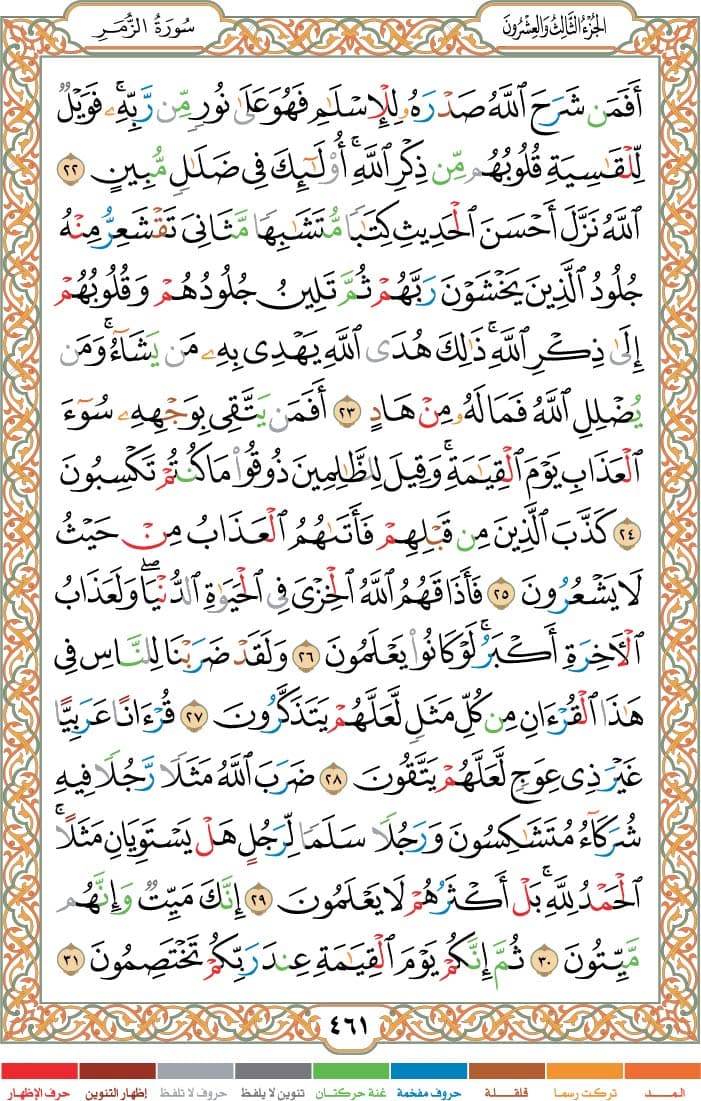 الجُزْءُ الثَّالِثُ وَالعِشْرُونَ
سُورَةُ الزُّمَر
أَفَمَن شَرَحَ ٱللَّهُ صَدْرَهُۥ لِلْإِسْلَٰمِ فَهُوَ عَلَىٰ نُورٍ مِّن رَّبِّهِۦ ۚ فَوَيْلٌ
لِّلْقَٰسِيَةِ قُلُوبُهُم مِّن ذِكْرِ ٱللَّهِ ۚ أُو۟لَٰٓئِكَ فِى ضَلَٰلٍ مُّبِينٍ ٢٢
ٱللَّهُ نَزَّلَ أَحْسَنَ ٱلْحَدِيثِ كِتَٰبًا مُّتَشَٰبِهًا مَّثَانِىَ تَقْشَعِرُّ مِنْهُ
جُلُودُ ٱلَّذِينَ يَخْشَوْنَ رَبَّهُمْ ثُمَّ تَلِينُ جُلُودُهُمْ وَقُلُوبُهُمْ
إِلَىٰ ذِكْرِ ٱللَّهِ ۚ ذَٰلِكَ هُدَى ٱللَّهِ يَهْدِى بِهِۦ مَن يَشَآءُ ۚ وَمَن
يُضْلِلِ ٱللَّهُ فَمَا لَهُۥ مِنْ هَادٍ ٢٣ أَفَمَن يَتَّقِى بِوَجْهِهِۦ سُوٓءَ
ٱلْعَذَابِ يَوْمَ ٱلْقِيَٰمَةِ ۚ وَقِيلَ لِلظَّٰلِمِينَ ذُوقُوا۟ مَا كُنتُمْ تَكْسِبُونَ
٢٤ كَذَّبَ ٱلَّذِينَ مِن قَبْلِهِمْ فَأَتَىٰهُمُ ٱلْعَذَابُ مِنْ حَيْثُ
لَا يَشْعُرُونَ ٢٥ فَأَذَاقَهُمُ ٱللَّهُ ٱلْخِزْىَ فِى ٱلْحَيَوٰةِ ٱلدُّنْيَا ۖ وَلَعَذَابُ
ٱلْءَاخِرَةِ أَكْبَرُ ۚ لَوْ كَانُوا۟ يَعْلَمُونَ ٢٦ وَلَقَدْ ضَرَبْنَا لِلنَّاسِ فِى
هَٰذَا ٱلْقُرْءَانِ مِن كُلِّ مَثَلٍ لَّعَلَّهُمْ يَتَذَكَّرُونَ ٢٧ قُرْءَانًا عَرَبِيًّا
غَيْرَ ذِى عِوَجٍ لَّعَلَّهُمْ يَتَّقُونَ ٢٨ ضَرَبَ ٱللَّهُ مَثَلًا رَّجُلًا فِيهِ
شُرَكَآءُ مُتَشَٰكِسُونَ وَرَجُلًا سَلَمًا لِّرَجُلٍ هَلْ يَسْتَوِيَانِ مَثَلًا ۚ
ٱلْحَمْدُ لِلَّهِ ۚ بَلْ أَكْثَرُهُمْ لَا يَعْلَمُونَ ٢٩ إِنَّكَ مَيِّتٌ وَإِنَّهُم
مَّيِّتُونَ ٣٠ ثُمَّ إِنَّكُمْ يَوْمَ ٱلْقِيَٰمَةِ عِندَ رَبِّكُمْ تَخْتَصِمُونَ ٣١
٤٦١
المـــد تركت رسما قلقـــلة حروف مفخمة غنة حركتان تنوين لا يلفظ حروف لا تلفظ إظهار التنوين حرف الإظهار